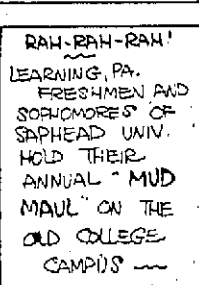 RAH-RAH-RAH!
LEARNING, PA.
FRESHMEN AND
SOPHOMORES OF
SAPHEAD UNIV.
HOLD THEIR
ANNUAL "MUD
MAUL" ON THE
OLD COLLEGE
CAMPUS